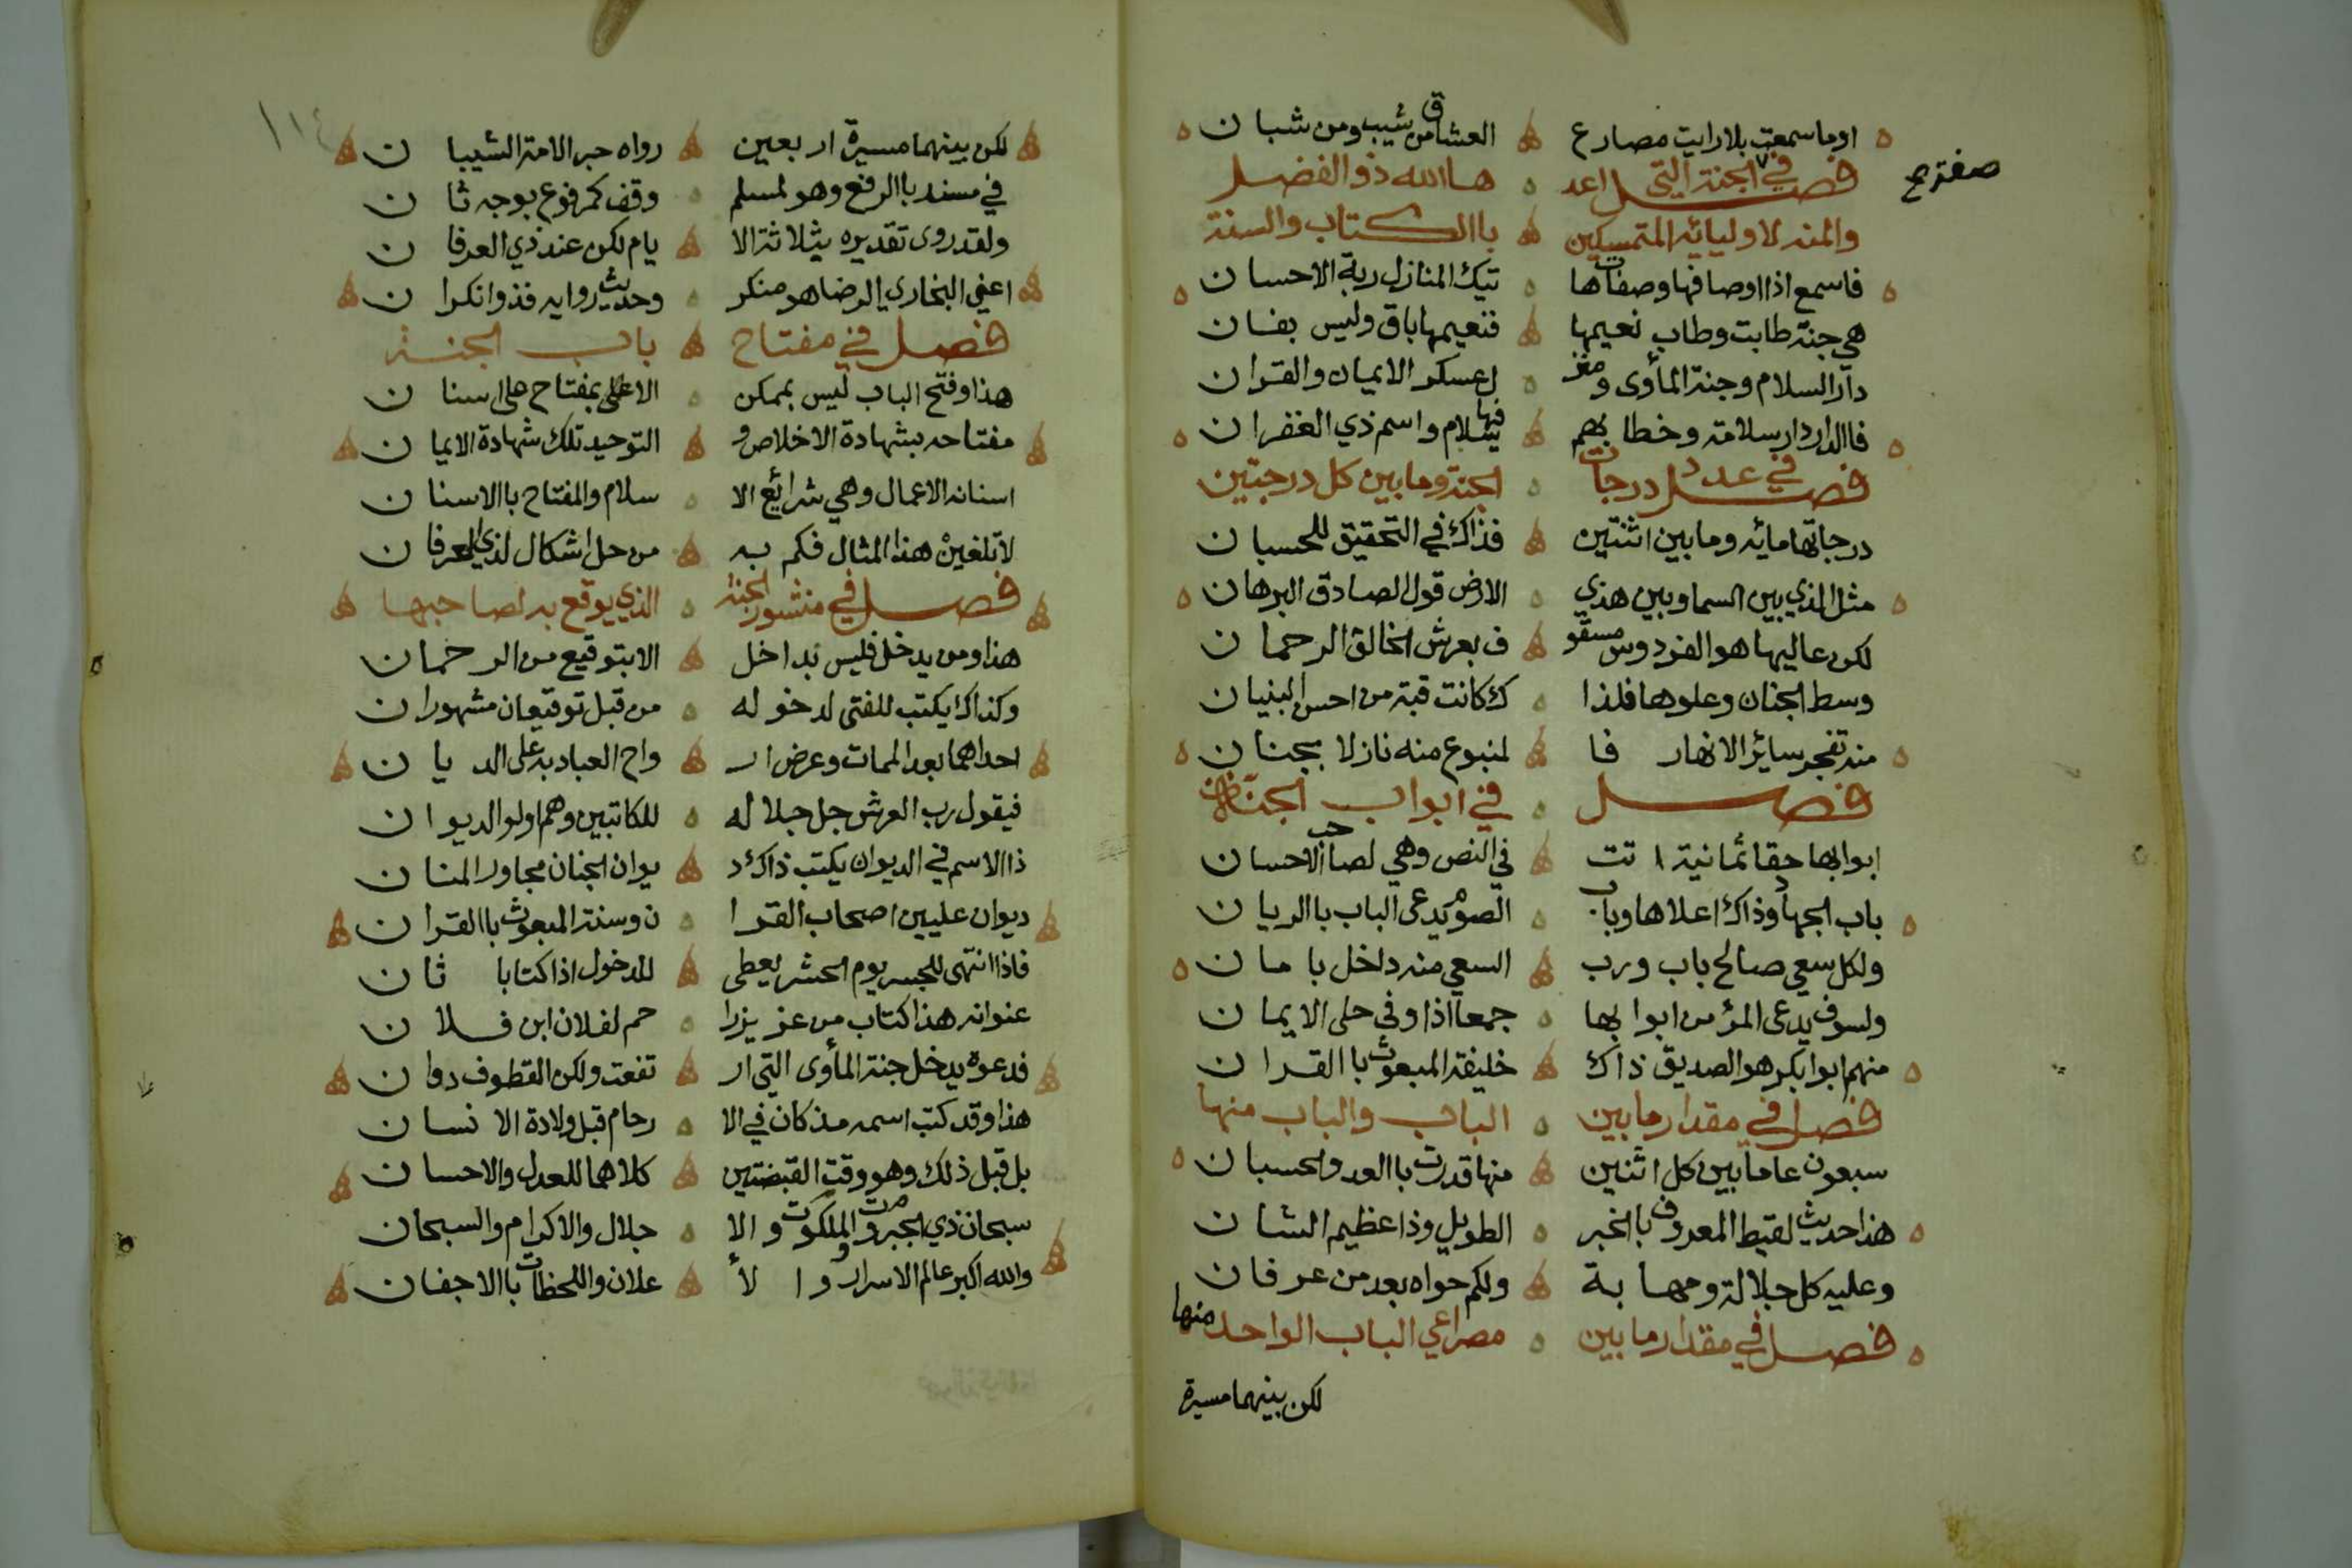 اوما سمعت بلا رايت مصارع العشاق من شيب ومن شبان
صفترح
فصل في الجنة التي اعد ها الله ذو الفضل
والمنه لاوليائه المتمسكين باالكتاب والسنة
فاسمع اذا اوصافها وصفات ها تيك المنازل ربة الاحسان
هي جنة طابت وطاب نعيمها فنعيمها باق وليس بفان
دار السلام وجنة المأوى ومنز ل عسكر الايمان والقران
فاالدار دار سلامة وخطابهم فيها سلام واسم ذي الغفران
فصل في عدد درجات الجنة وما بين كل درجتين
درجاتها مائه وما بين اثنتين فذاك في التحقيق للحسبان
مثل الذي بين السما وبين هذي الارض قول الصادق البرهان
لكن عاليها هو الفردوس مسقو ف بعرش الخالق الرحمان
وسط الجنان وعلوها فلذا ك كانت قبة من احسن البنيان
منه تفجر سائر الانهار فا لمنبوع منه نازلا بجنان
فصل في ابواب الجنة
ابوابها حقا ثمانية اتت في النص وهي لصاحب الاحسان
باب الجهاد وذاك اعلاها وباب الصوم يدعى الباب باالريان
ولكل سعي صالح باب ورب السعي منه داخل بامان
ولسوف يدعى المؤمن ابوابها جمعا اذا وفى حلى الايمان
منهم ابوا بكر هو الصديق ذاك خليفة المبعوث باالقران
فصل في مقدار ما بين الباب والباب منها
سبعون عاما بين كل اثنين منها قدرت باالعد والحسبان
هذا حديث لقيط المعروف باالخبر الطويل وذا عظيم الشان
وعليه كل جلالة ومهابة ولكم حواه بعد من عرفان
فصل في مقدار ما بين مصراعي الباب الواحد منها
لكن بينهما مسيرة
١١٤
لكن بينهما مسيرة اربعين رواه حبر الامة الشيبان
في مسند باالرفع وهو لمسلم وقف كمرفوع بوجه ثان
ولقد روى تقديره بثلاثة الا يام لكن عند ذي العرفان
اعني البخاري الرضا هو منكر وحديث روايه فذو انكران
فصل في مفتاح باب الجنة
هذا وفتح الباب ليس بممكن الا على بمفتاح على اسنان
مفتاحه بشهادة الاخلاص و التوحيد تلك شهادة الايمان
اسنانه الاعمال وهي شرائع الا سلام والمفتاح باالاسنان
لا تلغين هذا المثال فكم به من حل اشكال لذي العرفان
فصل في منشور الجنة الذي يوقع به لصاحبها
هذا ومن يدخل فليس بداخل الا بتوقيع من الرحمان
وكذاك يكتب للفتى لدخوله من قبل توقيعان مشهوران
احداهما بعد الممات وعرض ار واح العباد به على الديان
فيقول رب العرش جل جلاله للكاتبين وهم اولوا الديوان
ذا الاسم في الديوان يكتب ذاك د يوان الجنان مجاور المنان
ديوان عليين اصحاب القرا ن وسنة المبعوث باالقران
فاذا انتهى للجسر يوم الحشر يعطى للدخول اذا كتابا ثان
عنوانه هذا كتاب من عزيز را حم لفلان ابن فلان
فدعوه يدخل جنة المأوى التي ار تفعت ولكن القطوف دوان
هذا وقد كتب اسمه مذ كان في الا رحام قبل ولادة الانسان
بل قبل ذلك وهو وقت القبضتين كلاهما للعدل والاحسان
سبحان ذي الجبروت والملكوت و الا جلال والاكرام والسبحان
والله اكبر عالم الاسرار و ا لأ علان واللحظات باالاجفان